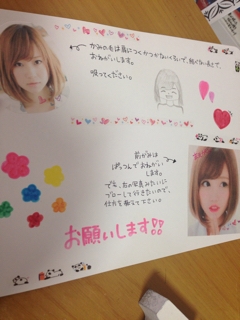 かみの毛は肩につくかつかないくらいで、軽くない長さで、
おねがいします。
吸ってください。
前がみは
ぱっつんでおねがい
します。
でも、右の写真みたいに
ブローして行きたいので、
仕方を教えて下さい。
お願いします!!